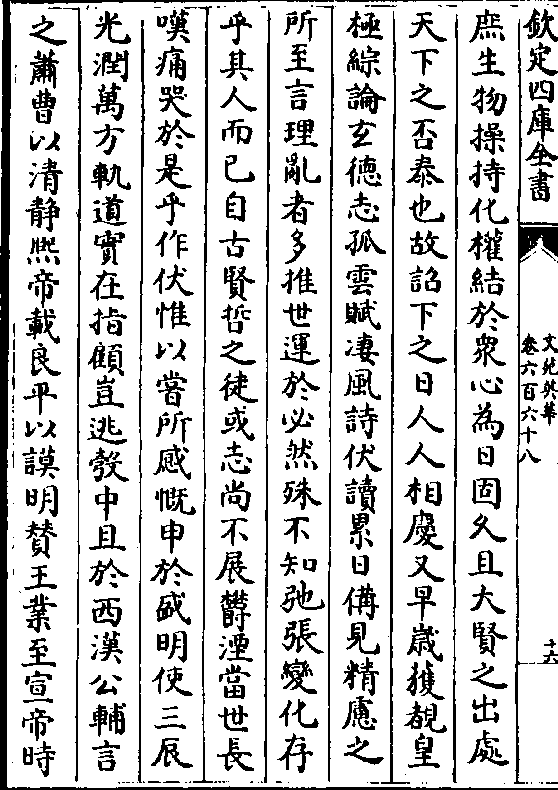 欽定四庫全書
文苑英華
卷六百六十八
十六
庶生物操持化權結於衆心為日固久且大賢之出處
天下之否泰也故詔下之日人人相慶又早歳獲覩皇
極綜論玄德志孤雲賦凄風詩伏讀累日備見精慮之
所至言理亂者多推世運於必然殊不知弛張變化存
乎其人而已自古賢哲之徒或志尚不展鬱湮當世長
嘆痛哭於是乎作伏惟以當所感慨申於盛明使三辰
光潤萬方軌道實在指顧豈逃彀中且於西漢公輔言
之蕭曹以清静熈帝載良平以謨明賛王業至宣帝時